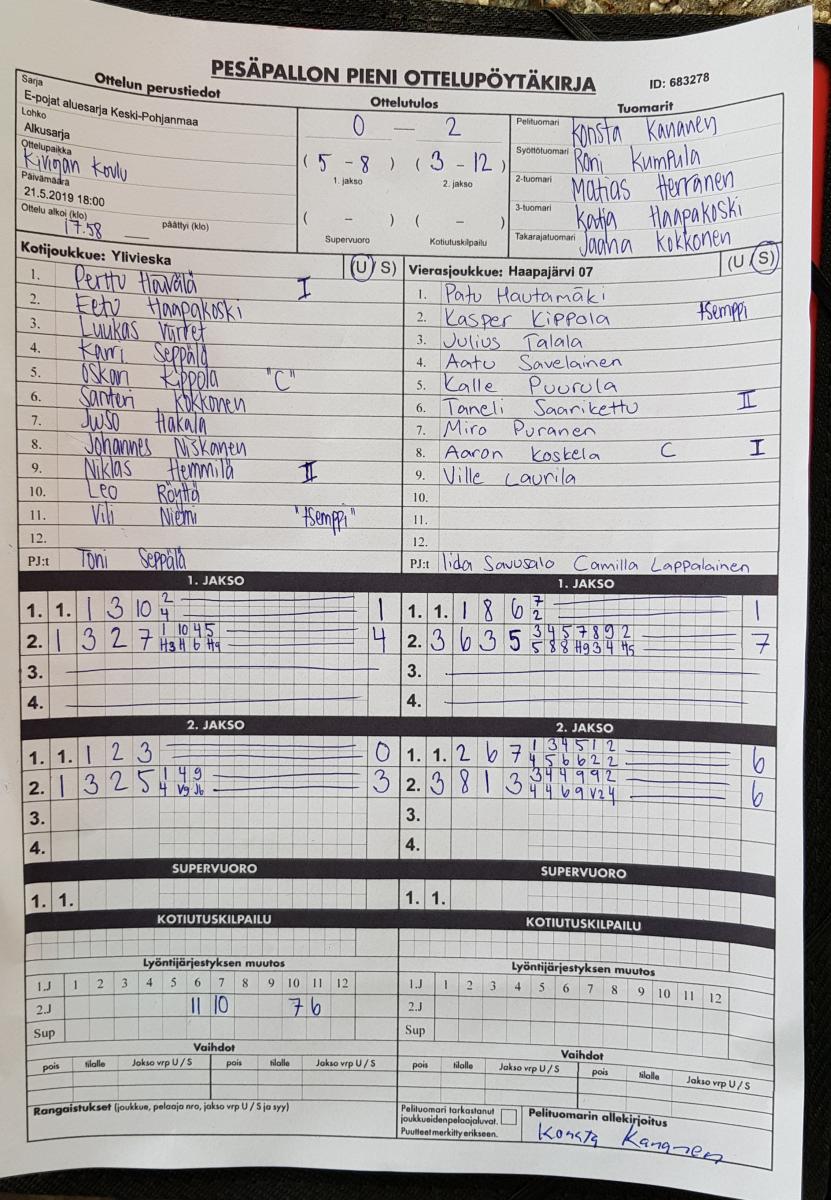 PESÄPALLON PIENI OTTELUPÖYTÄKIRJA
ID: 683278
Ottelun perustiedot
Sarja
E-pojat aluesarja Keski-Pohjanmaa
Lohko
Alkusarja
Ottelupaikka
Kivioja Koulu
Päivämäärä
21.5.2019 18:00
Ottelu alkoi (klo) päättyi (klo)
17.58
Ottelutulos
0 — 2
( 5 - 8 ) ( 3 - 12 )
1. jakso 2. jakso
( - ) ( - )
Supervuoro Kotiutuskilpailu
Tuomarit
Pelituomari Konsta Kananen
Syöttötuomari Roni Kumpula
2-tuomari Matias Herranen
3-tuomari Katja Haapakoski
Takarajatuomari Jaana Kokkonen
Kotijoukkue: Ylivieska (U/S)
1. Perttu Hävälä I
2. Eetu Haapakoski
3. Luukas Vurret
4. Karri Seppälä
5. Oskari Kippola "C"
6. Santeri Kokkonen
7. Juso Hakala
8. Johannes Niskanen
9. Niklas Hemmilä II
10. Leo Röyttä
11. Vili Niemi "tsemppi"
12.
PJ:t Toni Seppälä
Vierasjoukkue: Haapajärvi 07 (U/S)
1. Patu Hautamäki
2. Kasper Kippola tsemppi
3. Julius Talala
4. Aatu Savelainen
5. Kalle Puurula
6. Taneli Saarikettu II
7. Miro Puranen
8. Aaron Koskela C I
9. Ville Laurila
10.
11.
12.
PJ:t Iida Savusalo Camilla Lappalainen
1. JAKSO
1. 1. 1 3 10 2 1
4
2. 1 3 2 7 1 10 4 5 4
H3 H 6 H9
3.
4.
1. JAKSO
1. 1. 1 8 6 7 1
2
2. 3 6 3 5 3 4 5 7 8 9 2 7
5 8 8 H9 3 4 H5
3.
4.
2. JAKSO
1. 1. 1 2 3 0
2. 1 3 2 5 1 4 9 3
4 V9 J6
3.
4.
2. JAKSO
1. 1. 2 6 7 1 3 4 5 1 2 6
4 5 6 6 2 2
2. 3 8 1 3 3 4 4 9 9 2 6
4 4 6 9 V2 4
3.
4.
SUPERVUORO
1. 1.
SUPERVUORO
1. 1.
KOTIUTUSKILPAILU
KOTIUTUSKILPAILU
Lyöntijärjestyksen muutos
1.J 1 2 3 4 5 6 7 8 9 10 11 12
2.J 11 10 7 6
Sup
Lyöntijärjestyksen muutos
1.J 1 2 3 4 5 6 7 8 9 10 11 12
2.J
Sup
Vaihdot
pois tilalle Jakso vrp U / S pois tilalle Jakso vrp U / S
Vaihdot
pois tilalle Jakso vrp U / S pois tilalle Jakso vrp U / S
Rangaistukset (joukkue, pelaaja nro, jakso vrp U / S ja syy)
Pelituomari tarkastanut
joukkueidenpelaajaluvat.
Puutteet merkitty erikseen.
Pelituomarin allekirjoitus
Konsta Kananen